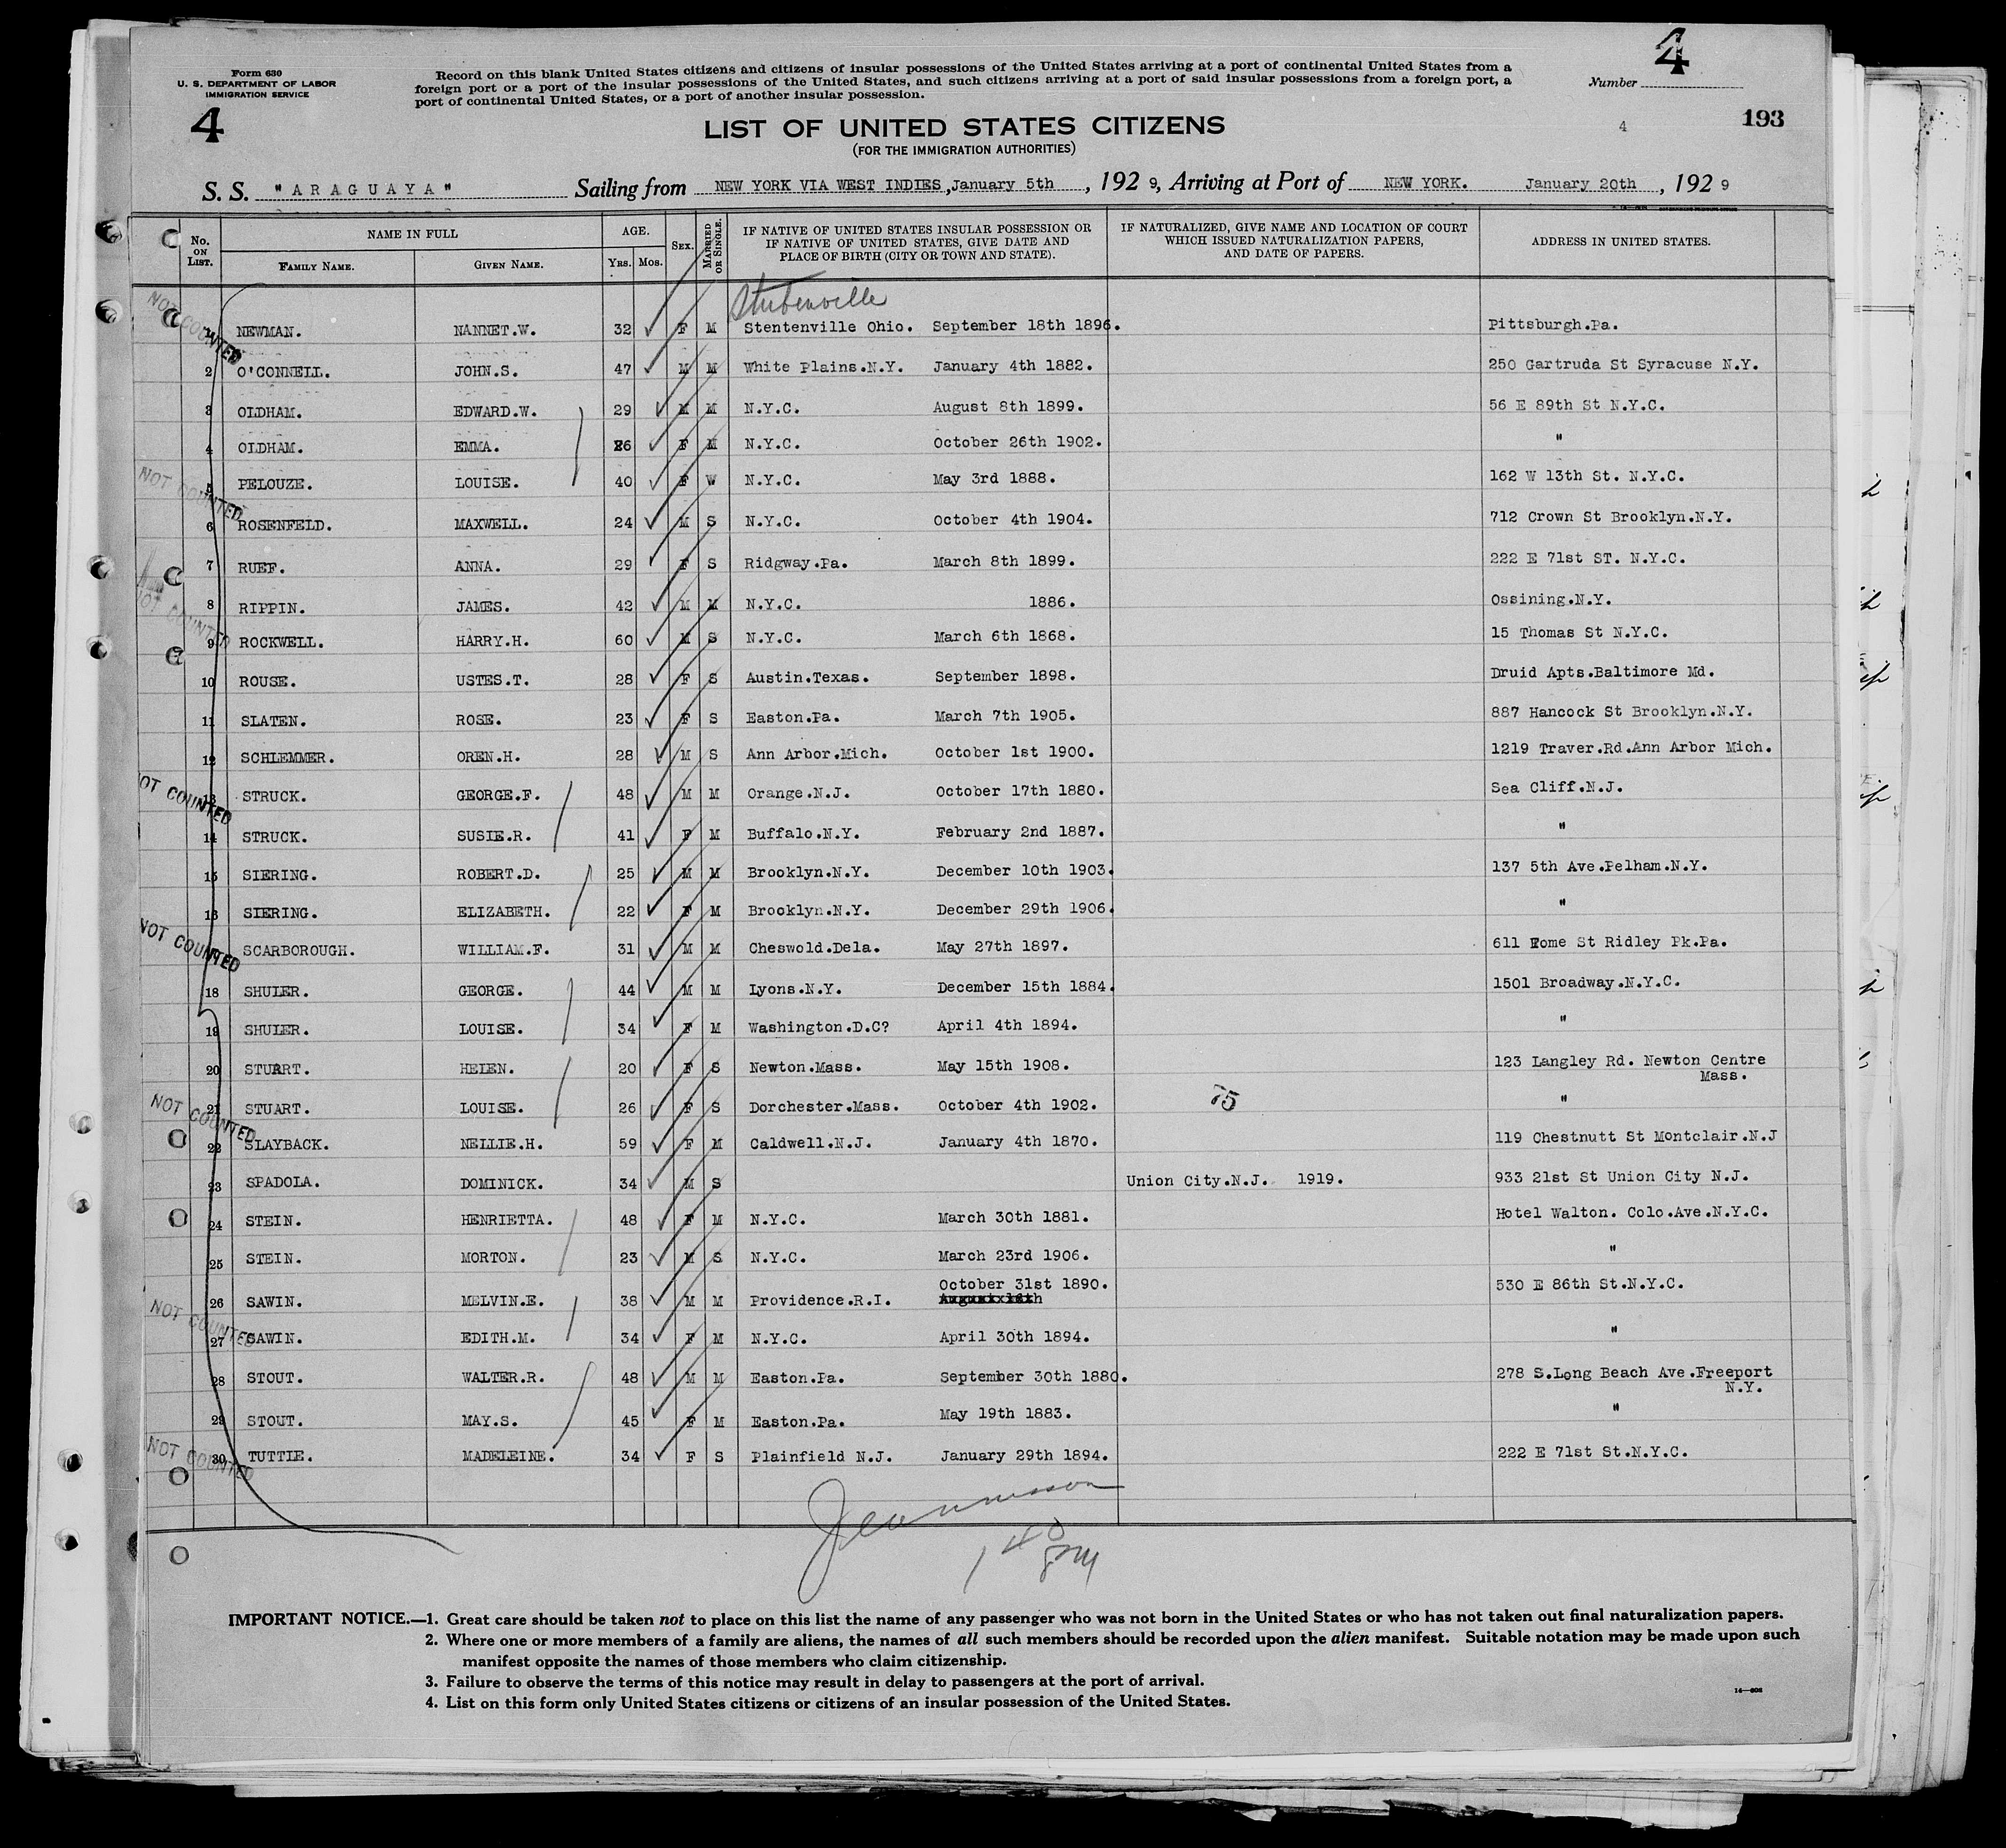 Form 630
U. S. DEPARTMENT OF LABOR
IMMIGRATION SERVICE
4
Record on this blank United States citizens and citizens of insular possessions of the United States arriving at a port of continental United States from a
foreign port or a port of the insular possessions of the United States, and such citizens arriving at a port of said insular possessions from a foreign port, a
port of continental United States, or a port of another insular possession.
Number 4
LIST OF UNITED STATES CITIZENS
(FOR THE IMMIGRATION AUTHORITIES)
4
193
S. S. "ARAGUAYA" Sailing from NEW YORK VIA WEST INDIES, January 5th, 1929, Arriving at Port of NEW YORK. January 20th, 1929
No. ON LIST. NAME IN FULL FAMILY NAME. GIVEN NAME. AGE. YRS. MOS. SEX. MARRIED OR SINGLE. IF NATIVE OF UNITED STATES INSULAR POSSESSION OR IF NATIVE OF UNITED STATES, GIVE DATE AND PLACE OF BIRTH (CITY OR TOWN AND STATE). IF NATURALIZED, GIVE NAME AND LOCATION OF COURT WHICH ISSUED NATURALIZATION PAPERS, AND DATE OF PAPERS. ADDRESS IN UNITED STATES.
Stubenville
NOT COUNTED
1 NEWMAN. NANNET.W. 32 F M Stentenville Ohio. September 18th 1896. Pittsburgh.Pa.
2 O'CONNELL. JOHN.S. 47 M M White Plains.N.Y. January 4th 1882. 250 Gartruda St Syracuse N.Y.
3 OLDHAM. EDWARD.W. 29 M M N.Y.C. August 8th 1899. 56 E 89th St N.Y.C.
4 OLDHAM. EMMA. 26 F M N.Y.C. October 26th 1902. "
NOT COUNTED
5 PELOUZE. LOUISE. 40 F W N.Y.C. May 3rd 1888. 162 W 13th St. N.Y.C.
6 ROSENFELD. MAXWELL. 24 M S N.Y.C. October 4th 1904. 712 Crown St Brooklyn.N.Y.
7 RUEF. ANNA. 29 F S Ridgway.Pa. March 8th 1899. 222 E 71st ST. N.Y.C.
NOT COUNTED
8 RIPPIN. JAMES. 42 M M N.Y.C. 1886. Ossining.N.Y.
9 ROCKWELL. HARRY.H. 60 M S N.Y.C. March 6th 1868. 15 Thomas St N.Y.C.
10 ROUSE. USTES.T. 28 F S Austin.Texas. September 1898. Druid Apts.Baltimore Md.
11 SLATEN. ROSE. 23 F S Easton.Pa. March 7th 1905. 887 Hancock St Brooklyn.N.Y.
12 SCHLEMMER. OREN.H. 28 M S Ann Arbor.Mich. October 1st 1900. 1219 Traver.Rd.Ann Arbor Mich.
NOT COUNTED
13 STRUCK. GEORGE.F. 48 M M Orange.N.J. October 17th 1880. Sea Cliff.N.J.
14 STRUCK. SUSIE.R. 41 F M Buffalo.N.Y. February 2nd 1887. "
15 SIERING. ROBERT.D. 25 M M Brooklyn.N.Y. December 10th 1903. 137 5th Ave.Pelham.N.Y.
16 SIERING. ELIZABETH. 22 F M Brooklyn.N.Y. December 29th 1906. "
NOT COUNTED
SCARBOROUGH. WILLIAM.F. 31 M M Cheswold.Dela. May 27th 1897. 611 Fome St Ridley Pk.Pa.
18 SHULER. GEORGE. 44 M M Lyons.N.Y. December 15th 1884. 1501 Broadway.N.Y.C.
19 SHULER. LOUISE. 34 F M Washington.D.C? April 4th 1894. "
20 STUART. HELEN. 20 F S Newton.Mass. May 15th 1908. 123 Langley Rd. Newton Centre
Mass.
NOT COUNTED
21 STUART. LOUISE. 26 F S Dorchester.Mass. October 4th 1902. 75 "
22 SLAYBACK. NELLIE.H. 59 F M Caldwell.N.J. January 4th 1870. 119 Chestnutt St Montclair.N.J
23 SPADOLA. DOMINICK. 34 M S Union City.N.J. 1919. 933 21st St Union City N.J.
24 STEIN. HENRIETTA. 48 F M N.Y.C. March 30th 1881. Hotel Walton. Colo.Ave.N.Y.C.
25 STEIN. MORTON. 23 M S N.Y.C. March 23rd 1906. "
October 31st 1890.
NOT COUNTED
26 SAWIN. MELVIN.E. 38 M M Providence.R.I. 530 E 86th St.N.Y.C.
27 SAWIN. EDITH.M. 34 F M N.Y.C. April 30th 1894. "
28 STOUT. WALTER.R. 48 M M Easton.Pa. September 30th 1880. 278 S.Long Beach Ave.Freeport
N.Y.
29 STOUT. MAY.S. 45 F M Easton.Pa. May 19th 1883. "
NOT COUNTED
30 TUTTLE. MADELEINE. 34 F S Plainfield N.J. January 29th 1894. 222 E 71st St.N.Y.C.
IMPORTANT NOTICE.—1. Great care should be taken not to place on this list the name of any passenger who was not born in the United States or who has not taken out final naturalization papers.
2. Where one or more members of a family are aliens, the names of all such members should be recorded upon the alien manifest. Suitable notation may be made upon such
manifest opposite the names of those members who claim citizenship.
3. Failure to observe the terms of this notice may result in delay to passengers at the port of arrival.
4. List on this form only United States citizens or citizens of an insular possession of the United States.